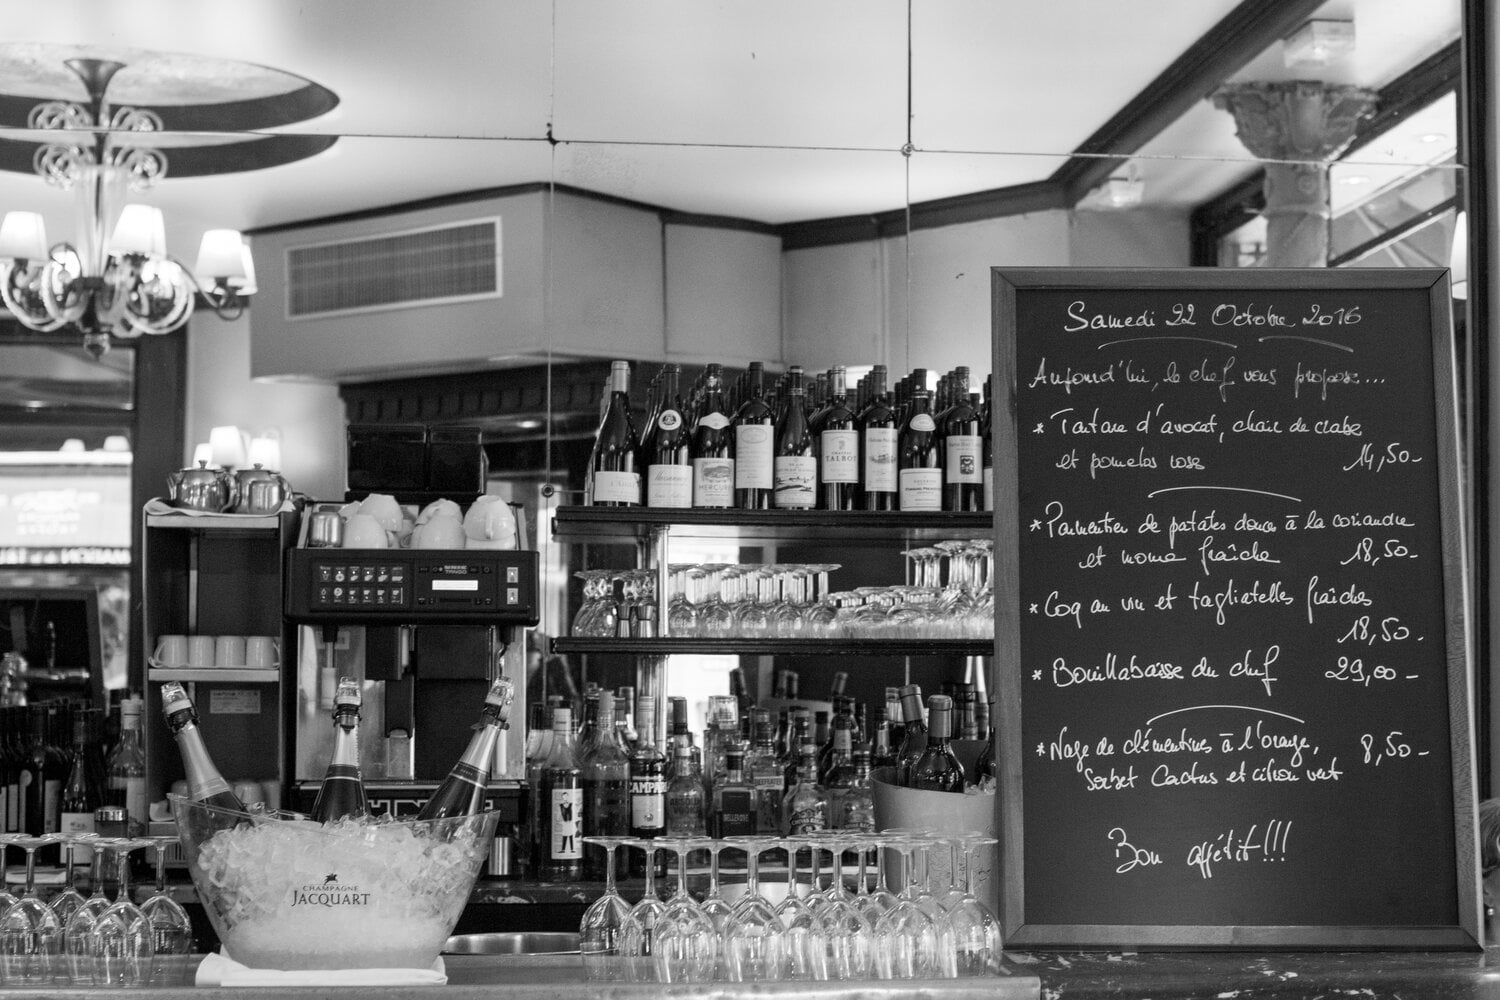 Samedi 22 Octobre 2016
Aujourd'hui, le chef vous propose...
* Tartare d'avocat, chair de crabe
et pomelos rose 14,50-
* Parmentier de patates douces à la coriandre
et morue fraîche 18,50-
* Coq au vin et tagliatelles fraîches
18,50-
* Bouillabaisse du chef 29,00-
* Nage de clémentines à l'orange, 8,50-
Sorbet Cactus et citron vert
Bon appétit!!!
TALBOT
MERCUREY
CAMPARI
BELLEVOYE
CHAMPAGNE
JACQUART